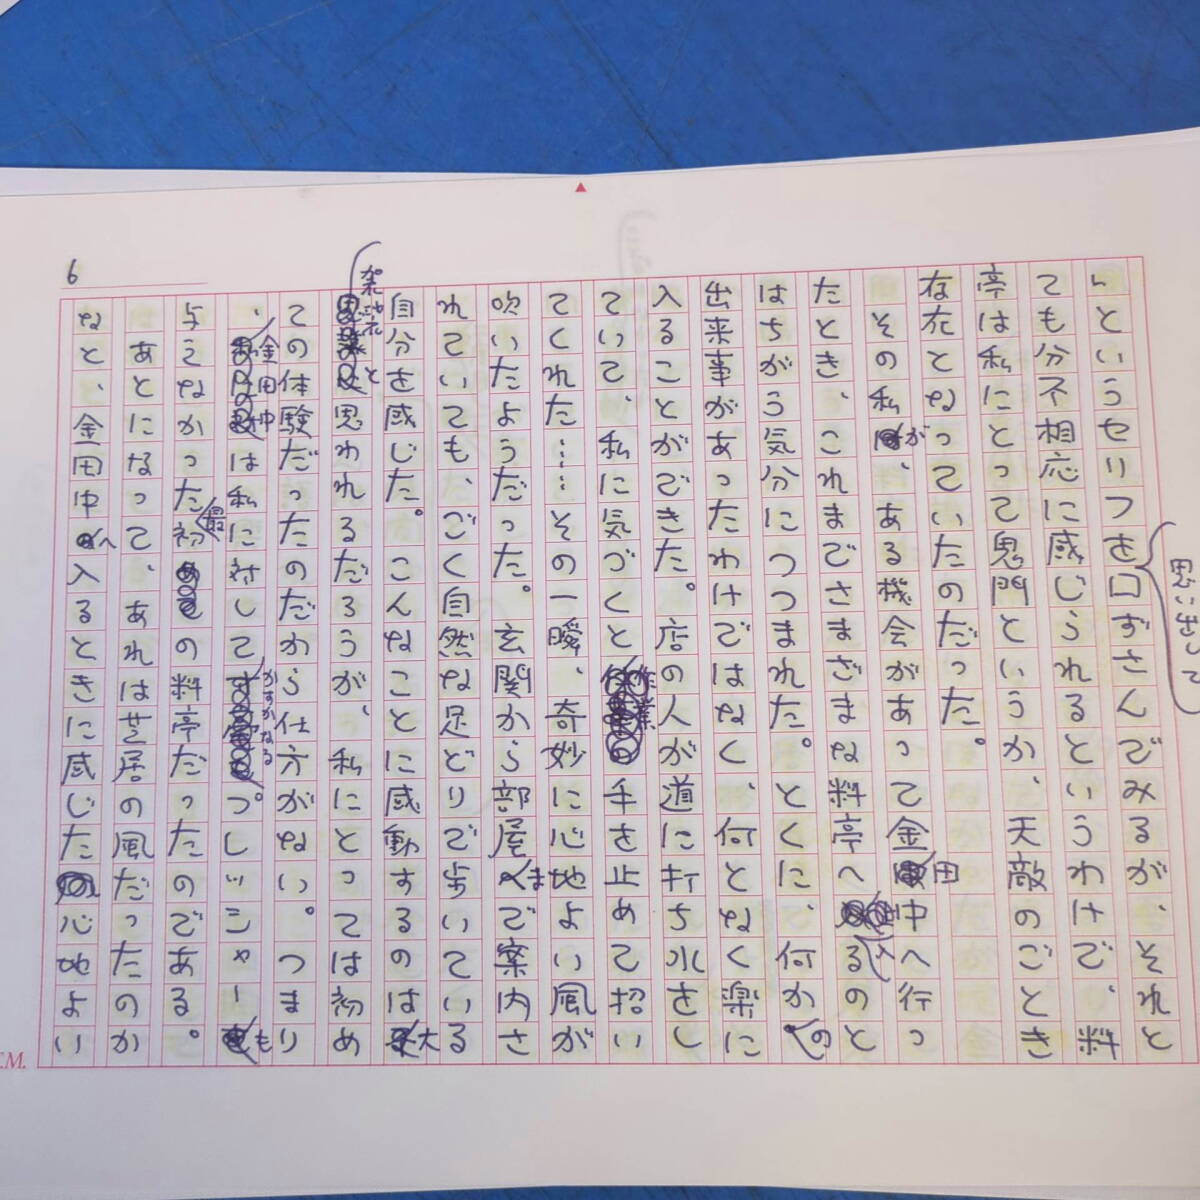 6
思い出して
」というセリフを口ずさんでみるが、それと
ても分不相応に感じられるというわけで、料
亭は私にとって鬼門というか、天敵のごとき
存在となっていたのだった。
その私が、ある機会があって金田中へ行っ
たとき、これまでさまざまな料亭へ入るのと
はちがう気分につつまれた。とくに、何かの
出来事があったわけではなく、何となく楽に
入ることができた。店の人が道に打ち水をし
ていて、私に気づくと作業の手を止めて招い
てくれた……その一瞬、奇妙に心地よい風が
吹いたようだった。玄関から部屋まで案内さ
れていても、ごく自然な足どりで歩いている
自分を感じた。こんなことに感動するのは大
袈裟と思われるだろうが、私にとっては初め
ての体験だったのだから仕方がない。つまり
、金田中は私に対してかすかなるプレッシャーも
与えなかった最初の料亭だったのである。
あとになって、あれは芝居の風だったのか
なと、金田中へ入るときに感じた心地よい